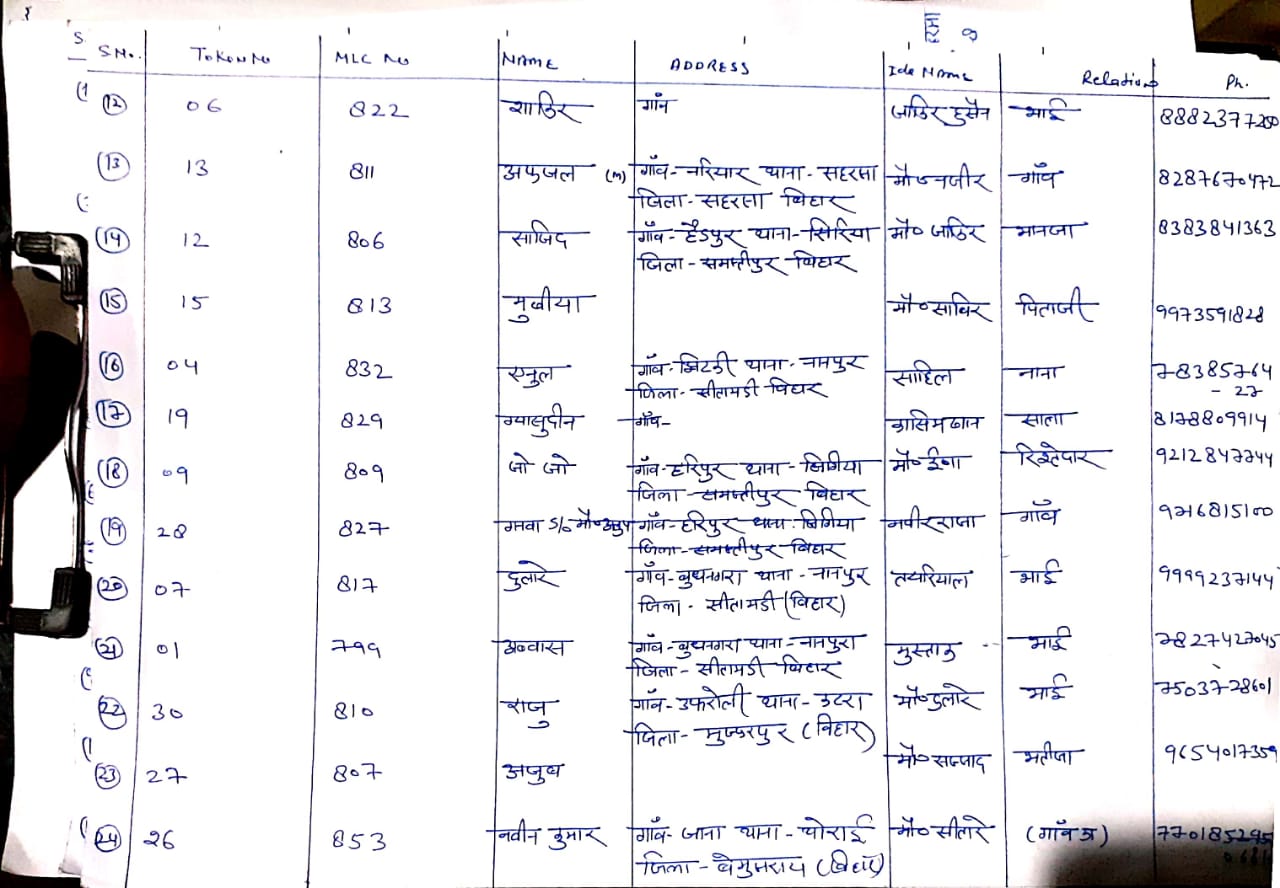 S.No. TOKEN NO MLC NO NAME ADDRESS Ide NAME Relation Ph.
(12) 06 822 शाकिर गाँव जाकिर हुसैन भाई 8882377200
(13) 13 811 अफजल (m) गाँव-नरियार थाना-सहरसा मौ० नजीर गाँव 8287670472
जिला-सहरसा बिहार
(14) 12 806 साजिद गाँव-हैडपुर थाना-सिंरिया मौ० जाकिर भानजा 8383841363
जिला-समस्तीपुर बिहार
(15) 15 813 मुखीया मौ०साविर पिताजी 9973591828
(16) 04 832 एनुल गाँव- थाना-नानपुर साहिल नाना 78385764
जिला-सीतामडी बिहार - 27
(17) 19 829 ग्यासुदीन गाँव- कासिमखान साला 8178809914
(18) 09 809 जो जो गाँव-हरिपुर थाना-सिंगिया मौ० रिश्तेदार 9212847744
जिला-समस्तीपुर बिहार
(19) 28 827 S/o मौ० गाँव-हरिपुर थाना-सिंगिया गाँव 9716815100
जिला-समस्तीपुर बिहार
(20) 07 817 दुलारे गाँव-बुधनगरा थाना-नानपुर भाई 9999237144
जिला-सीतामडी (बिहार)
(21) 01 799 अब्बास गाँव-बुधनगरा थाना-नानपुरा मुस्ताक भाई 7827427045
जिला-सीतामडी बिहार
(22) 30 810 राजु गाँव-उफरोली थाना-उटरा मौ०दुलारे भाई 7503728601
जिला-मुज्फरपुर (बिहार)
(23) 27 807 अजुब मौ०सज्जाद भतीजा 9654017359
(24) 26 853 नवीन कुमार गाँव-जाना थाना-चोराई मौ०सीतारे (गाँव
जिला-बेगुसराय (बिहार)